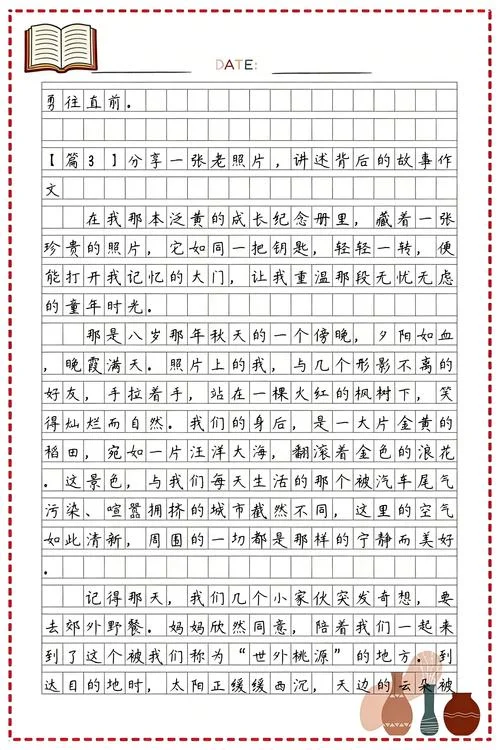 DATE:
勇往直前.
【篇3】分享一张老照片，讲述背后的故事作
文
在我那本泛黄的成长纪念册里，藏着一张
珍贵的照片，它如同一把钥匙，轻轻一转，便
能打开我记忆的大门，让我重温那段无忧无虑
的童年时光.
那是八岁那年秋天的一个傍晚，夕阳如血
，晚霞满天.照片上的我，与几个形影不离的
好友，手拉着手，站在一棵火红的枫树下，笑
得灿烂而自然.我们的身后，是一大片金黄的
稻田，宛如一片汪洋大海，翻滚着金色的浪花
.这景色，与我们每天生活的那个被汽车尾气
污染、喧嚣拥挤的城市截然不同，这里的空气
如此清新，周围的一切都是那样的宁静而美好
.
记得那天，我们几个小家伙突发奇想，要
去郊外野餐.妈妈欣然同意，陪着我们一起来
到了这个被我们称为“世外桃源”的地方.到
达目的地时，太阳正缓缓西沉，天边的云朵被